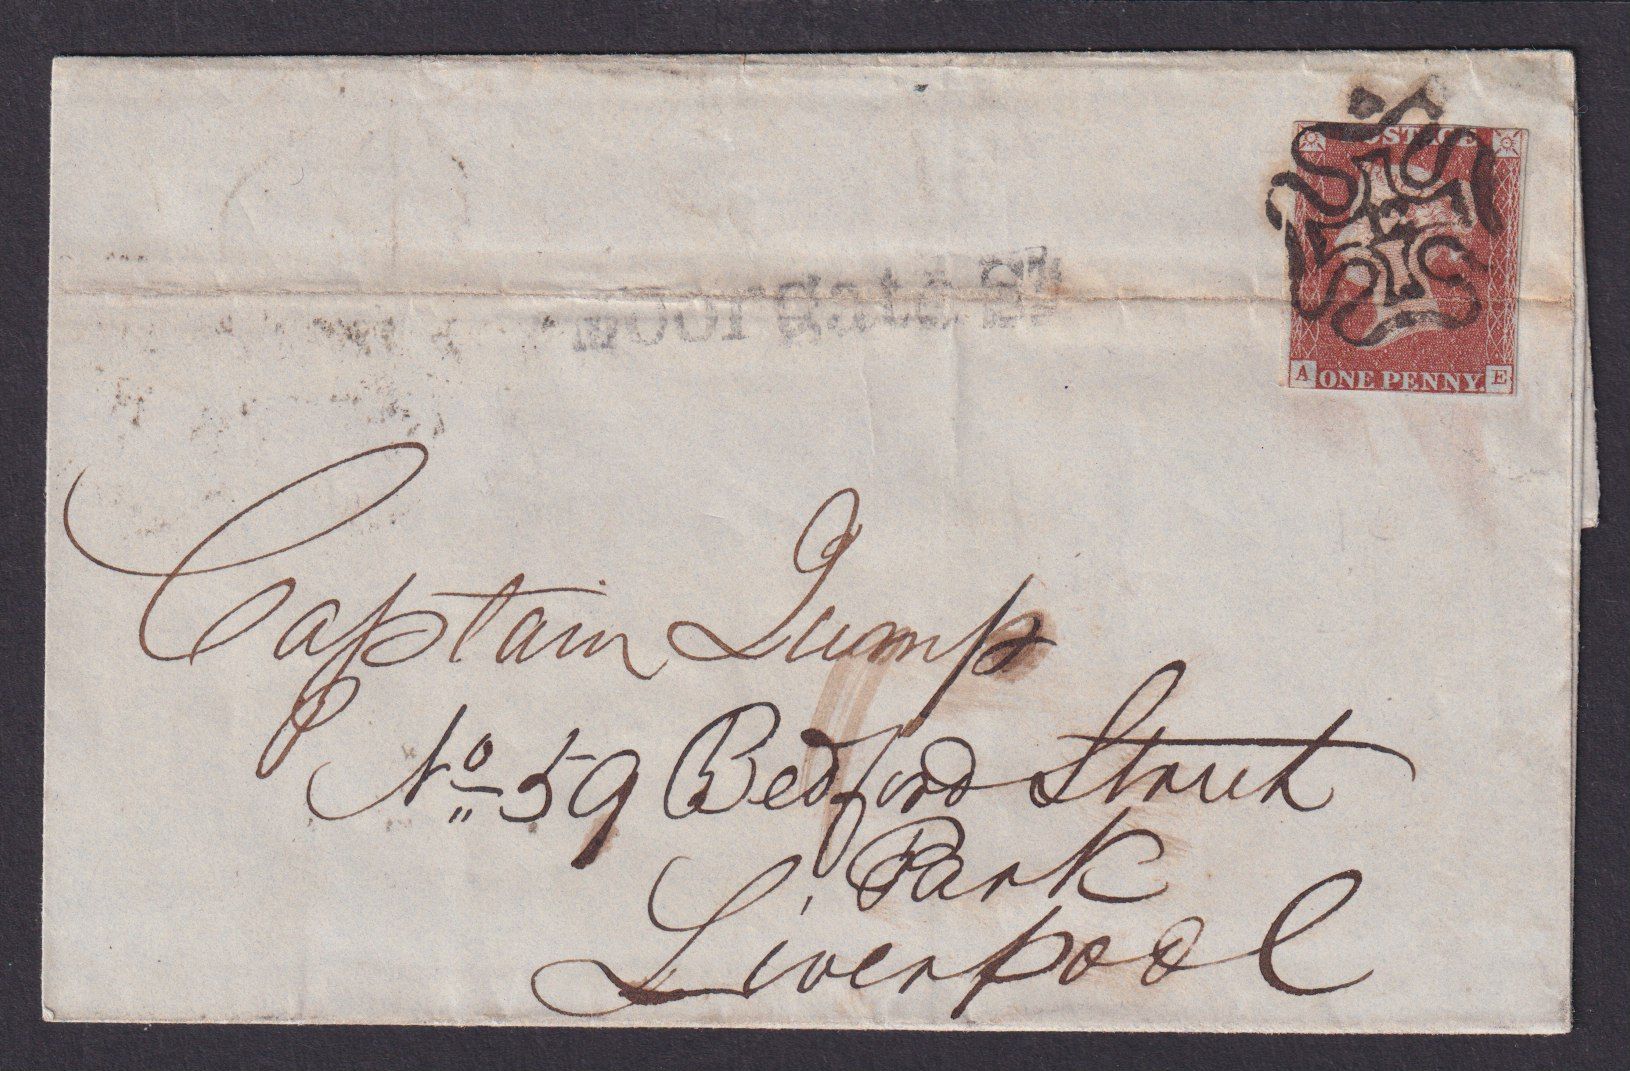 POSTAGE
12
Moorgate St
A ONE PENNY. E
Captain Jump
No 59 Bedford Street
Park
Liverpool